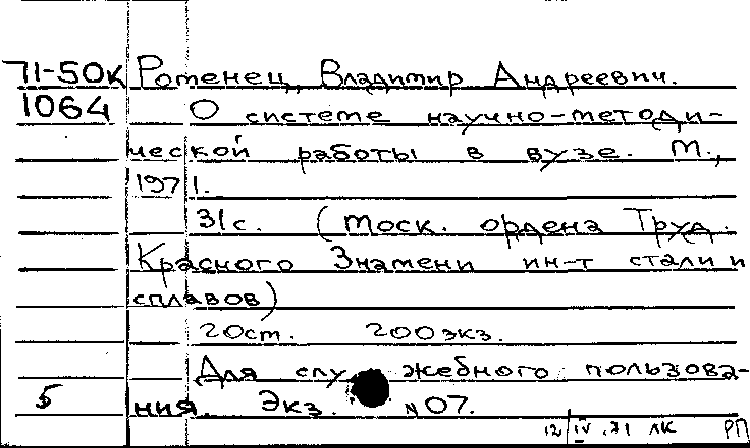 71-50к Ротенец, Владимир Андреевич.
1064 О системе научно-методи-
ческой работы в вузе. М.,
1971.
31с. (Моск. ордена Труд.
Красного Знамени ин-т стали и
сплавов)
20ст. 200экз.
Для служебного пользова-
5 ния. Экз. N07.
12/IV.71 ЛК РП